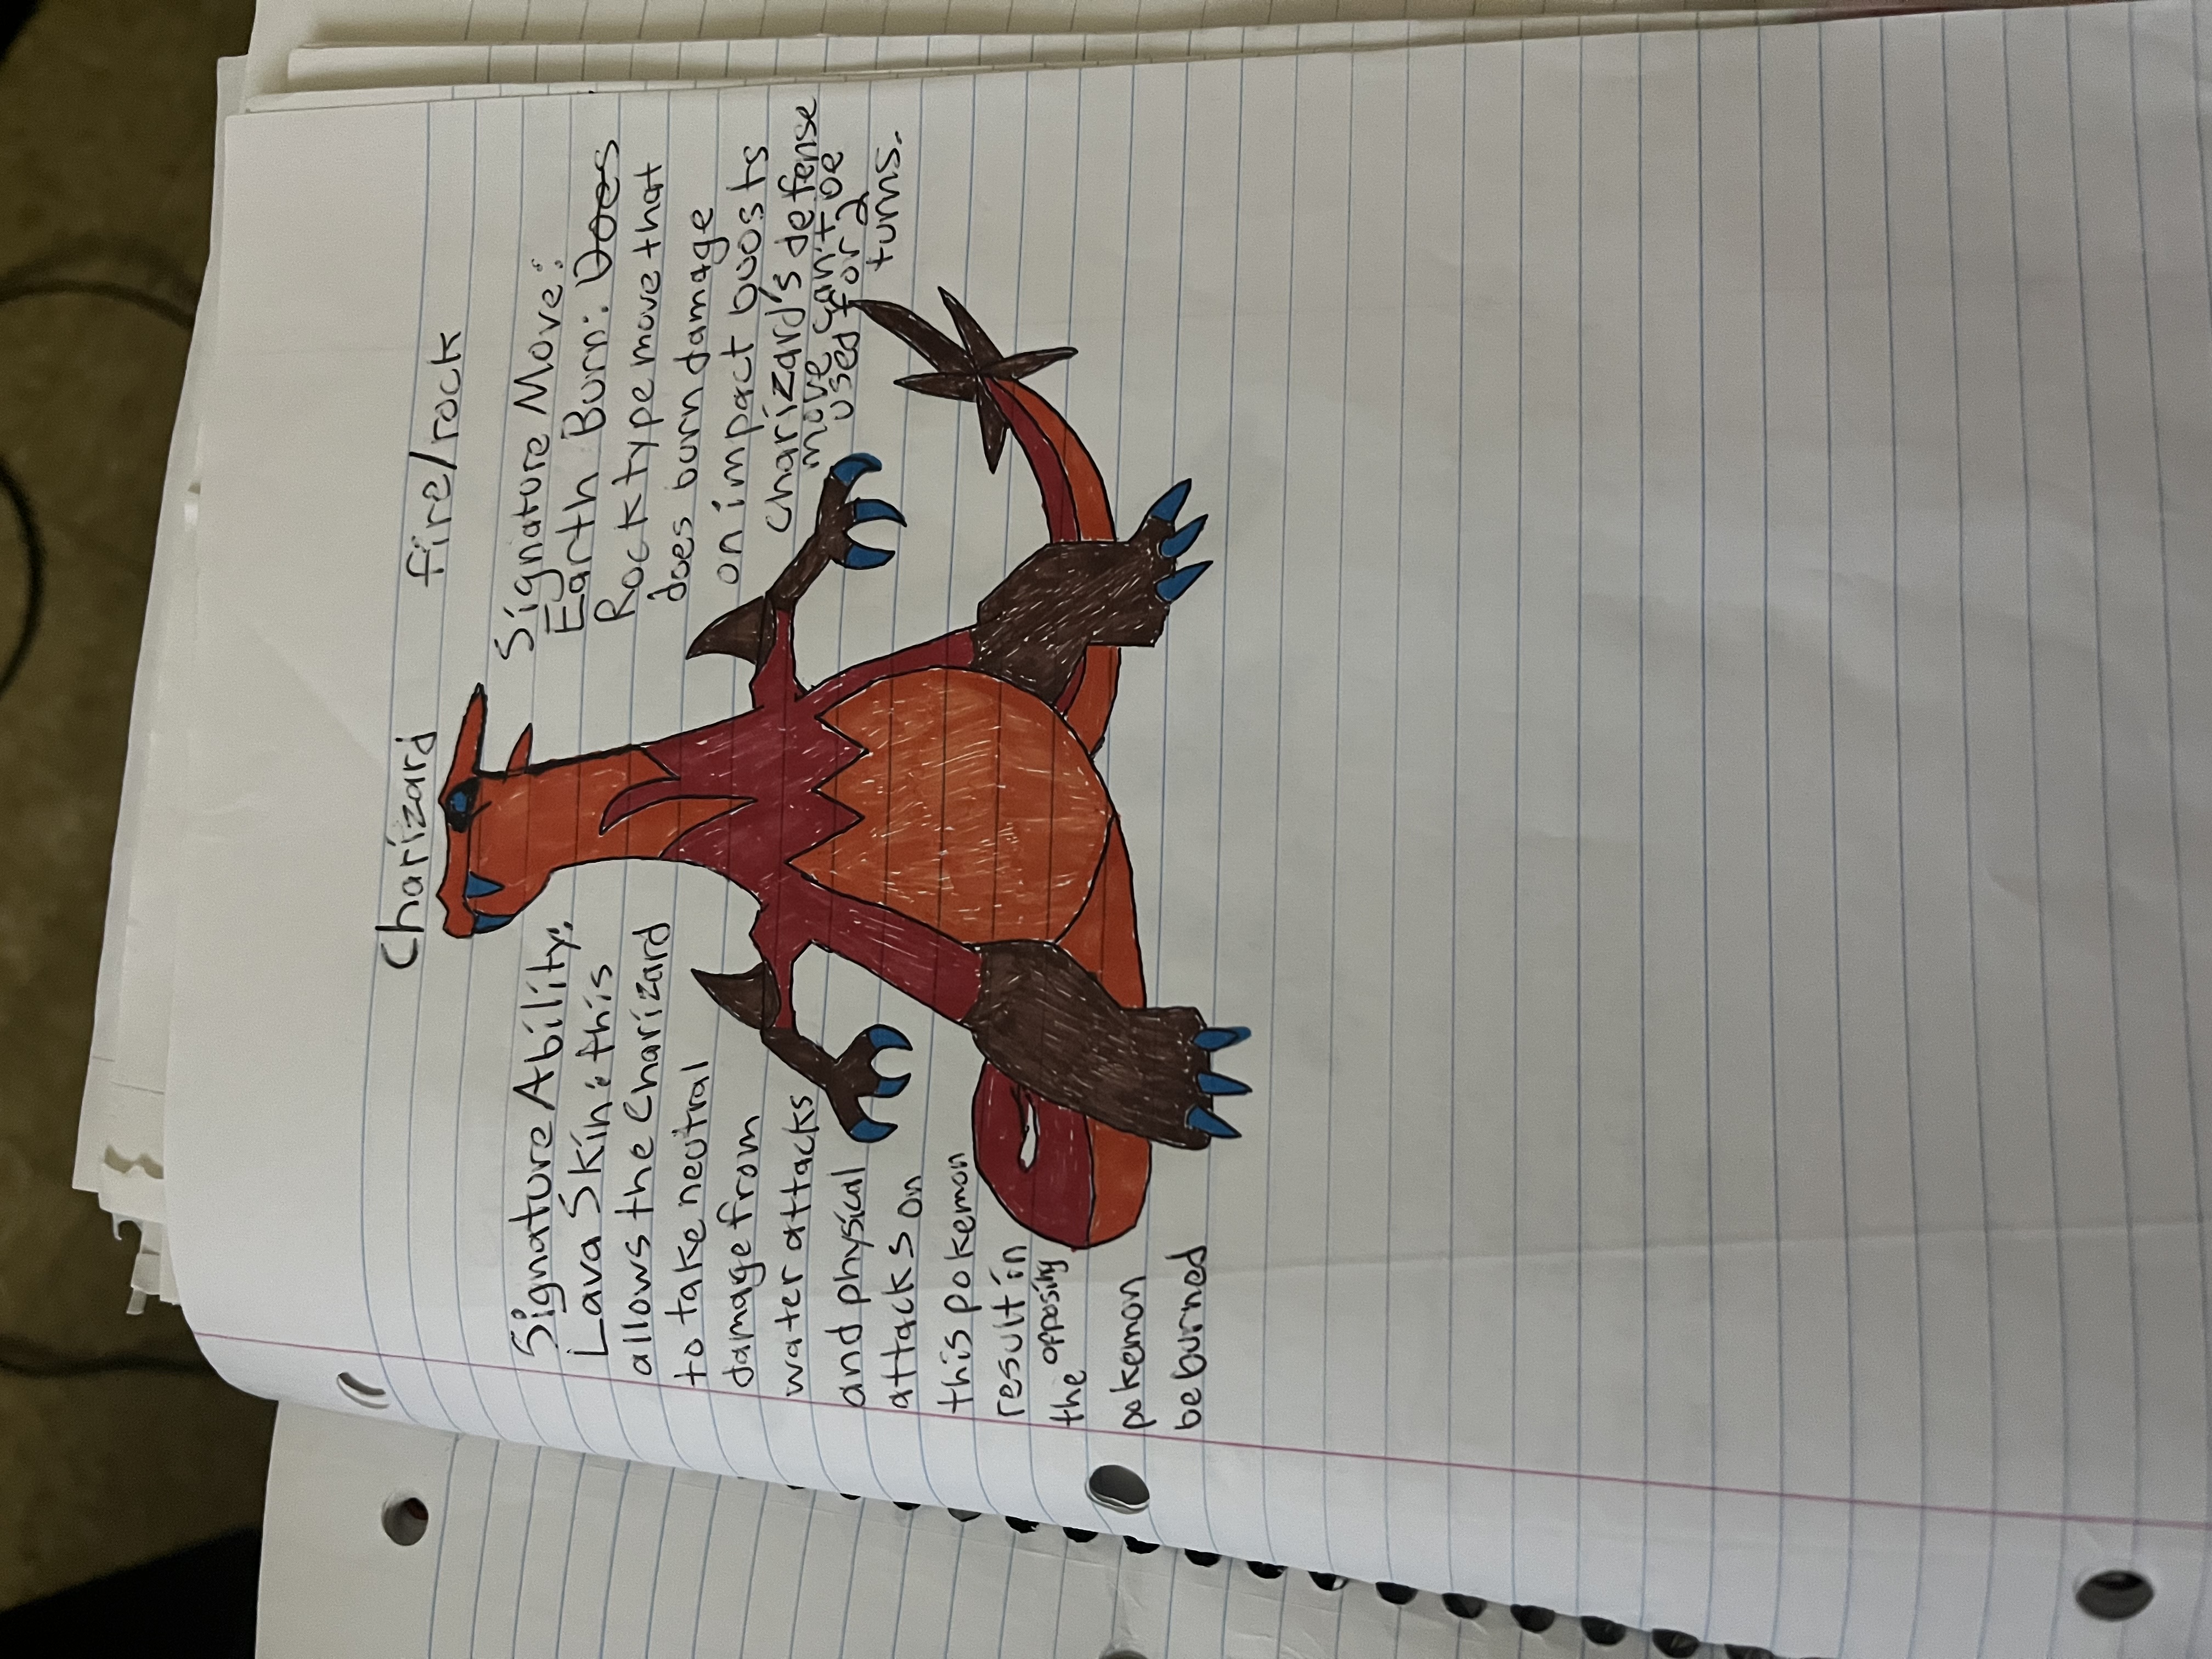 Charizard
fire/rock
Signature Ability:
Lava Skin: this
allows the Charizard
to take neutral
damage from
water attacks
and physical
attacks on
this pokemon
result in
the opposing
pokemon
be burned
Signature Move:
Earth Burn: Does
Rock type move that
does burn damage
on impact boosts
Charizard's defense
move can't be
used for 2
turns.